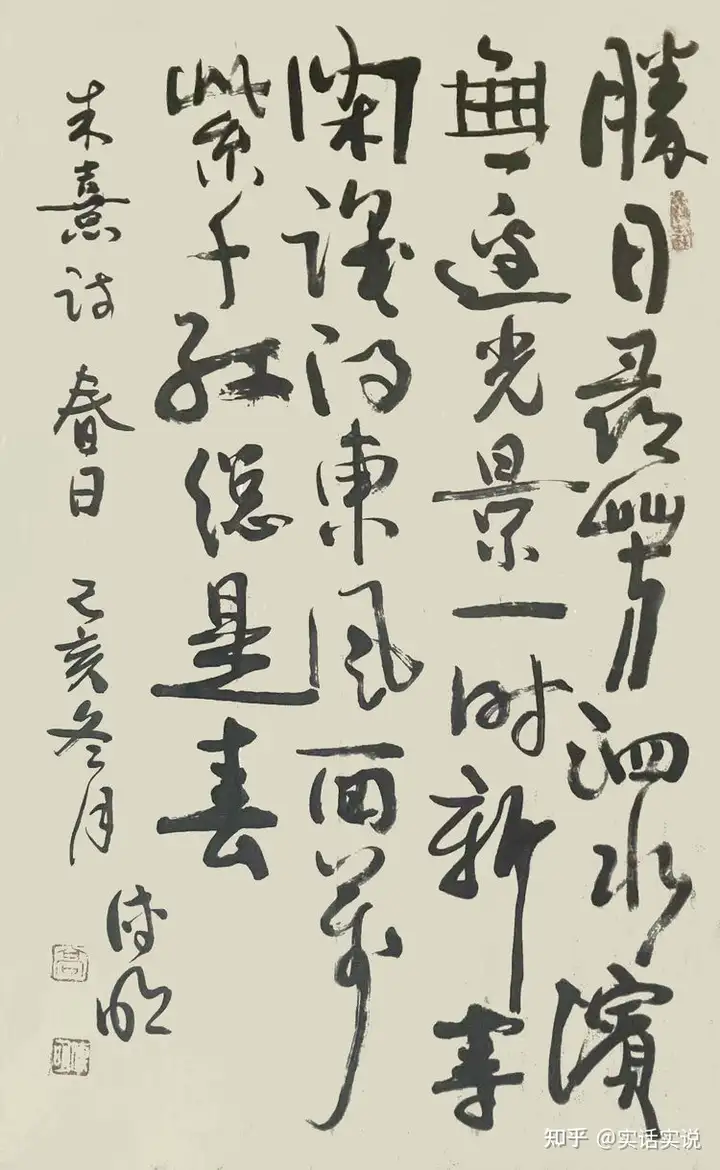 勝日尋芳泗水濱
無邊光景一时新等
閑識得東風面萬
紫千紅總是春
朱熹詩 春日 己亥冬月
高
知乎 @实话实说